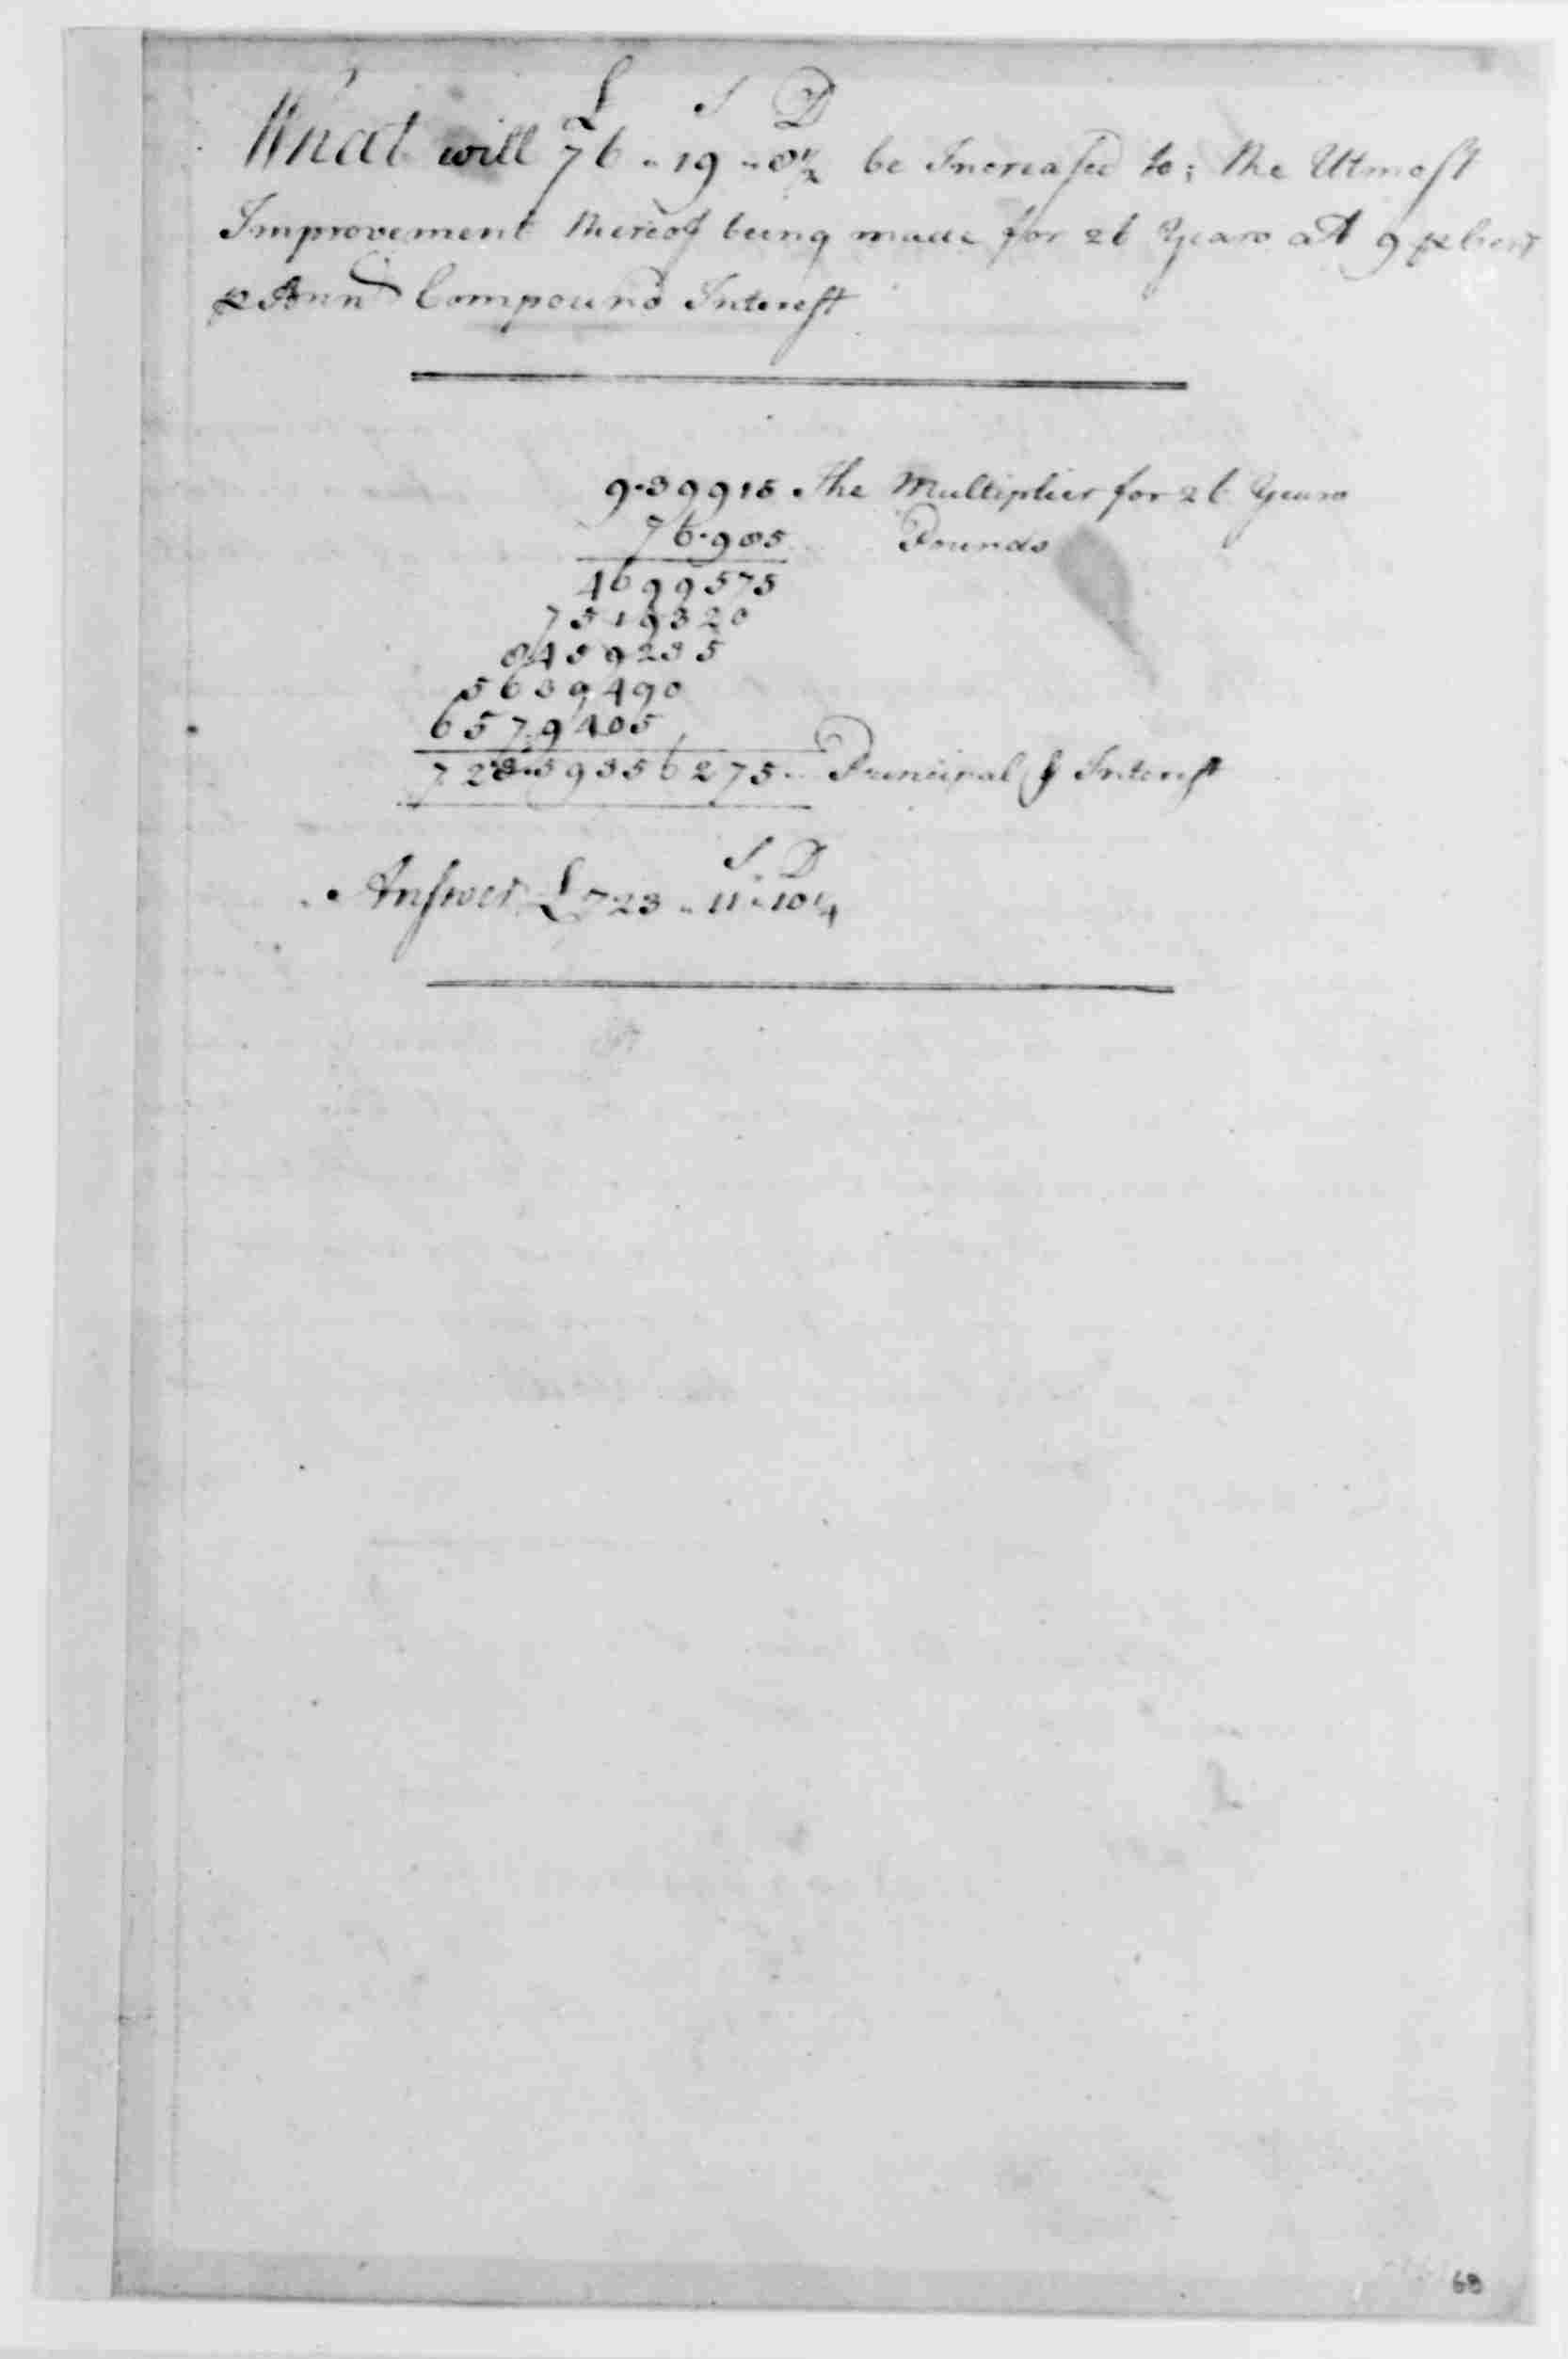 £ S D
What will 76 .. 19 .. 8½ be Increased to; the Utmost
Improvement thereof being made for 26 Years at 9 ⅌ Cent
⅌ Annd Compound Interest
9.39915 The Multiplier for 26 Years
76.985 Pounds
4699575
7519320
8459235
5639490
6579405
723.59356275 .. Principal & Interest
S D
Answer £723 .. 11 .. 10¼
68